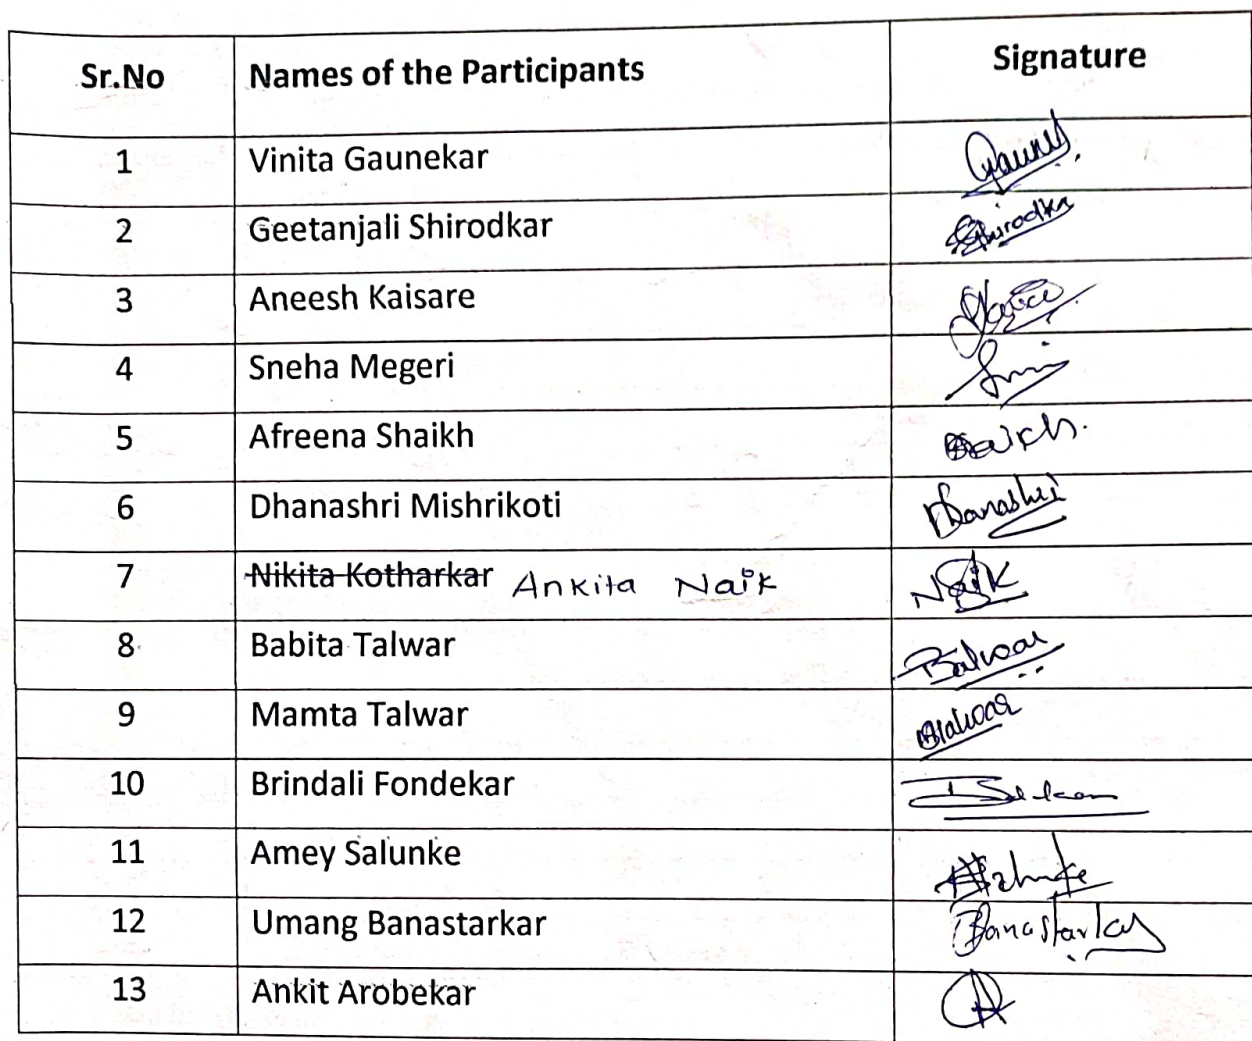 Sr.No Names of the Participants Signature
1 Vinita Gaunekar
2 Geetanjali Shirodkar
3 Aneesh Kaisare
4 Sneha Megeri
5 Afreena Shaikh
6 Dhanashri Mishrikoti Dhanashri
7 Nikita Kotharkar Ankita Naik Naik
8 Babita Talwar
9 Mamta Talwar
10 Brindali Fondekar
11 Amey Salunke
12 Umang Banastarkar Banastarkar
13 Ankit Arobekar